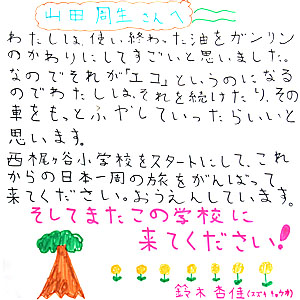 山田周生さんへ
わたしは、使い終わった油をガソリン
のかわりにしてすごいと思いました。
なのでそれが「エコ」というのになる
のでわたしは、それを続けたり、その
車をもっとふやしていったらいいと
思います。
西梶ヶ谷小学校をスタートにして、これ
からの日本一周の旅をがんばって
来てください。おうえんしています。
そしてまたこの学校に
来てください!
鈴木杏佳